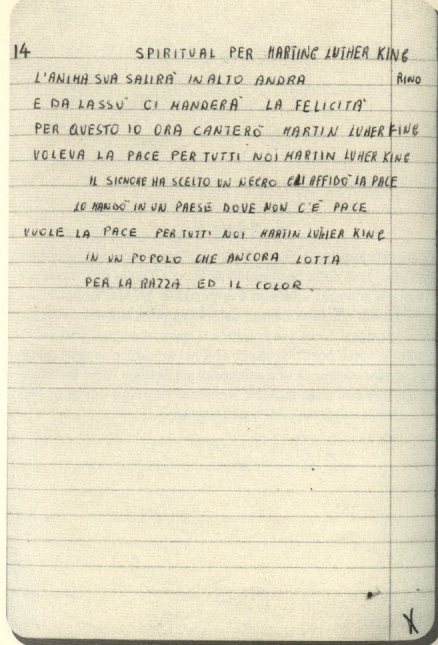 14 SPIRITUAL PER MARTING LUTHER KING
L'ANIMA SUA SALIRA' IN ALTO ANDRA RINO
E DA LASSU' CI MANDERA' LA FELICITA'
PER QUESTO IO ORA CANTERO' MARTIN LUHER KING
VOLEVA LA PACE PER TUTTI NOI MARTIN LUHER KING
IL SIGNORE HA SCELTO UN NEGRO GLI AFFIDO' LA PACE
LO MANDO' IN UN PAESE DOVE NON C'È PACE
VUOLE LA PACE PER TUTTI NOI MARTIN LUHER KING
IN UN POPOLO CHE ANCORA LOTTA
PER LA RAZZA ED IL COLOR.
X